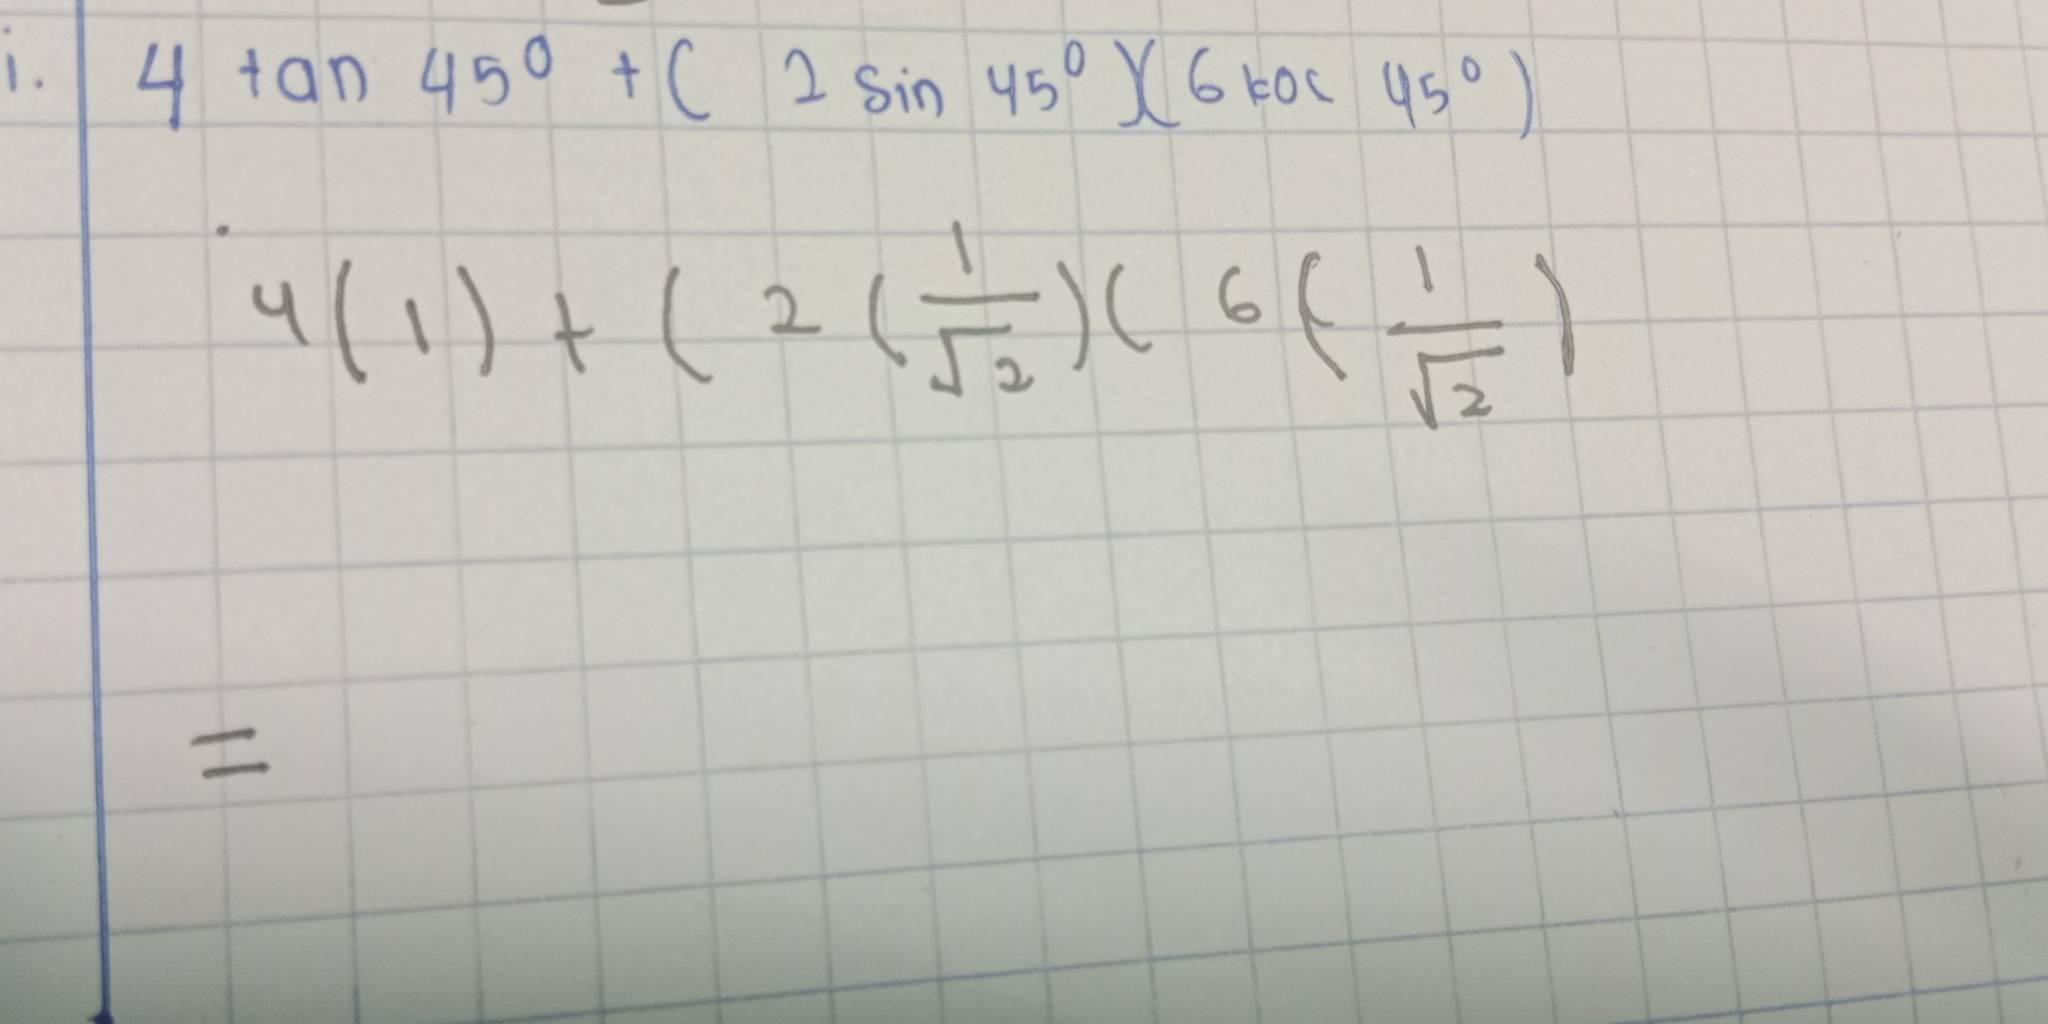 i. 4 tan 45⁰ + ( 2 sin 45⁰ )( 6 kos 45⁰ )
4 ( 1 ) + ( 2 ( 1/√2 ) ( 6 ( 1/√2 )
=